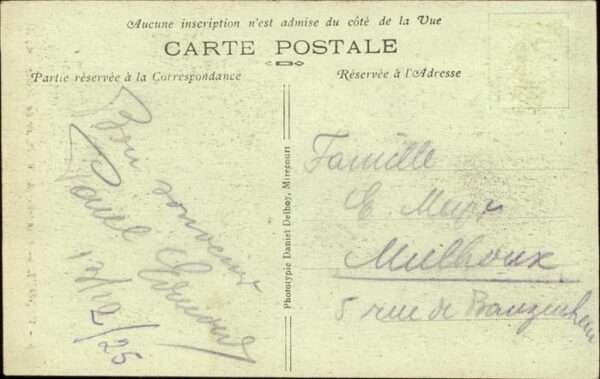 Aucune inscription n'est admise du côté de la Vue
CARTE POSTALE
Partie réservée à la Correspondance
Réservée à l'Adresse
Bon souvenir
Paul
13/12/25
Phototypie Daniel Delboy, Mirecourt
Famille
E. Meyer
Mulhoux
5 rue de Banzenheim